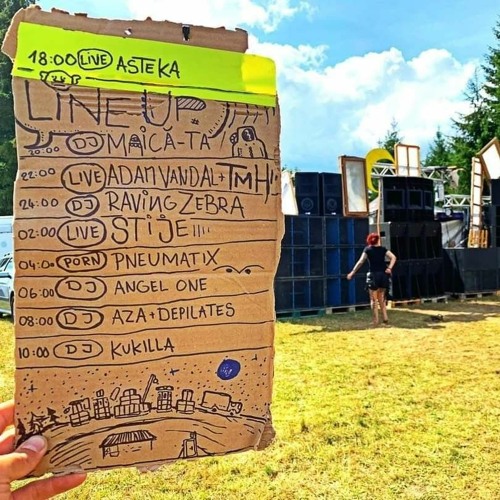 18:00 LIVE ASTEKA
LINE UP
20:00 DJ MAICĂ-TA
22:00 LIVE ADAM VANDAL + TMH
24:00 DJ RAVING ZEBRA
02:00 LIVE STIJE
04:00 PORN PNEUMATIX
06:00 DJ ANGEL ONE
08:00 DJ AZA + DEPILATES
10:00 DJ KUKILLA